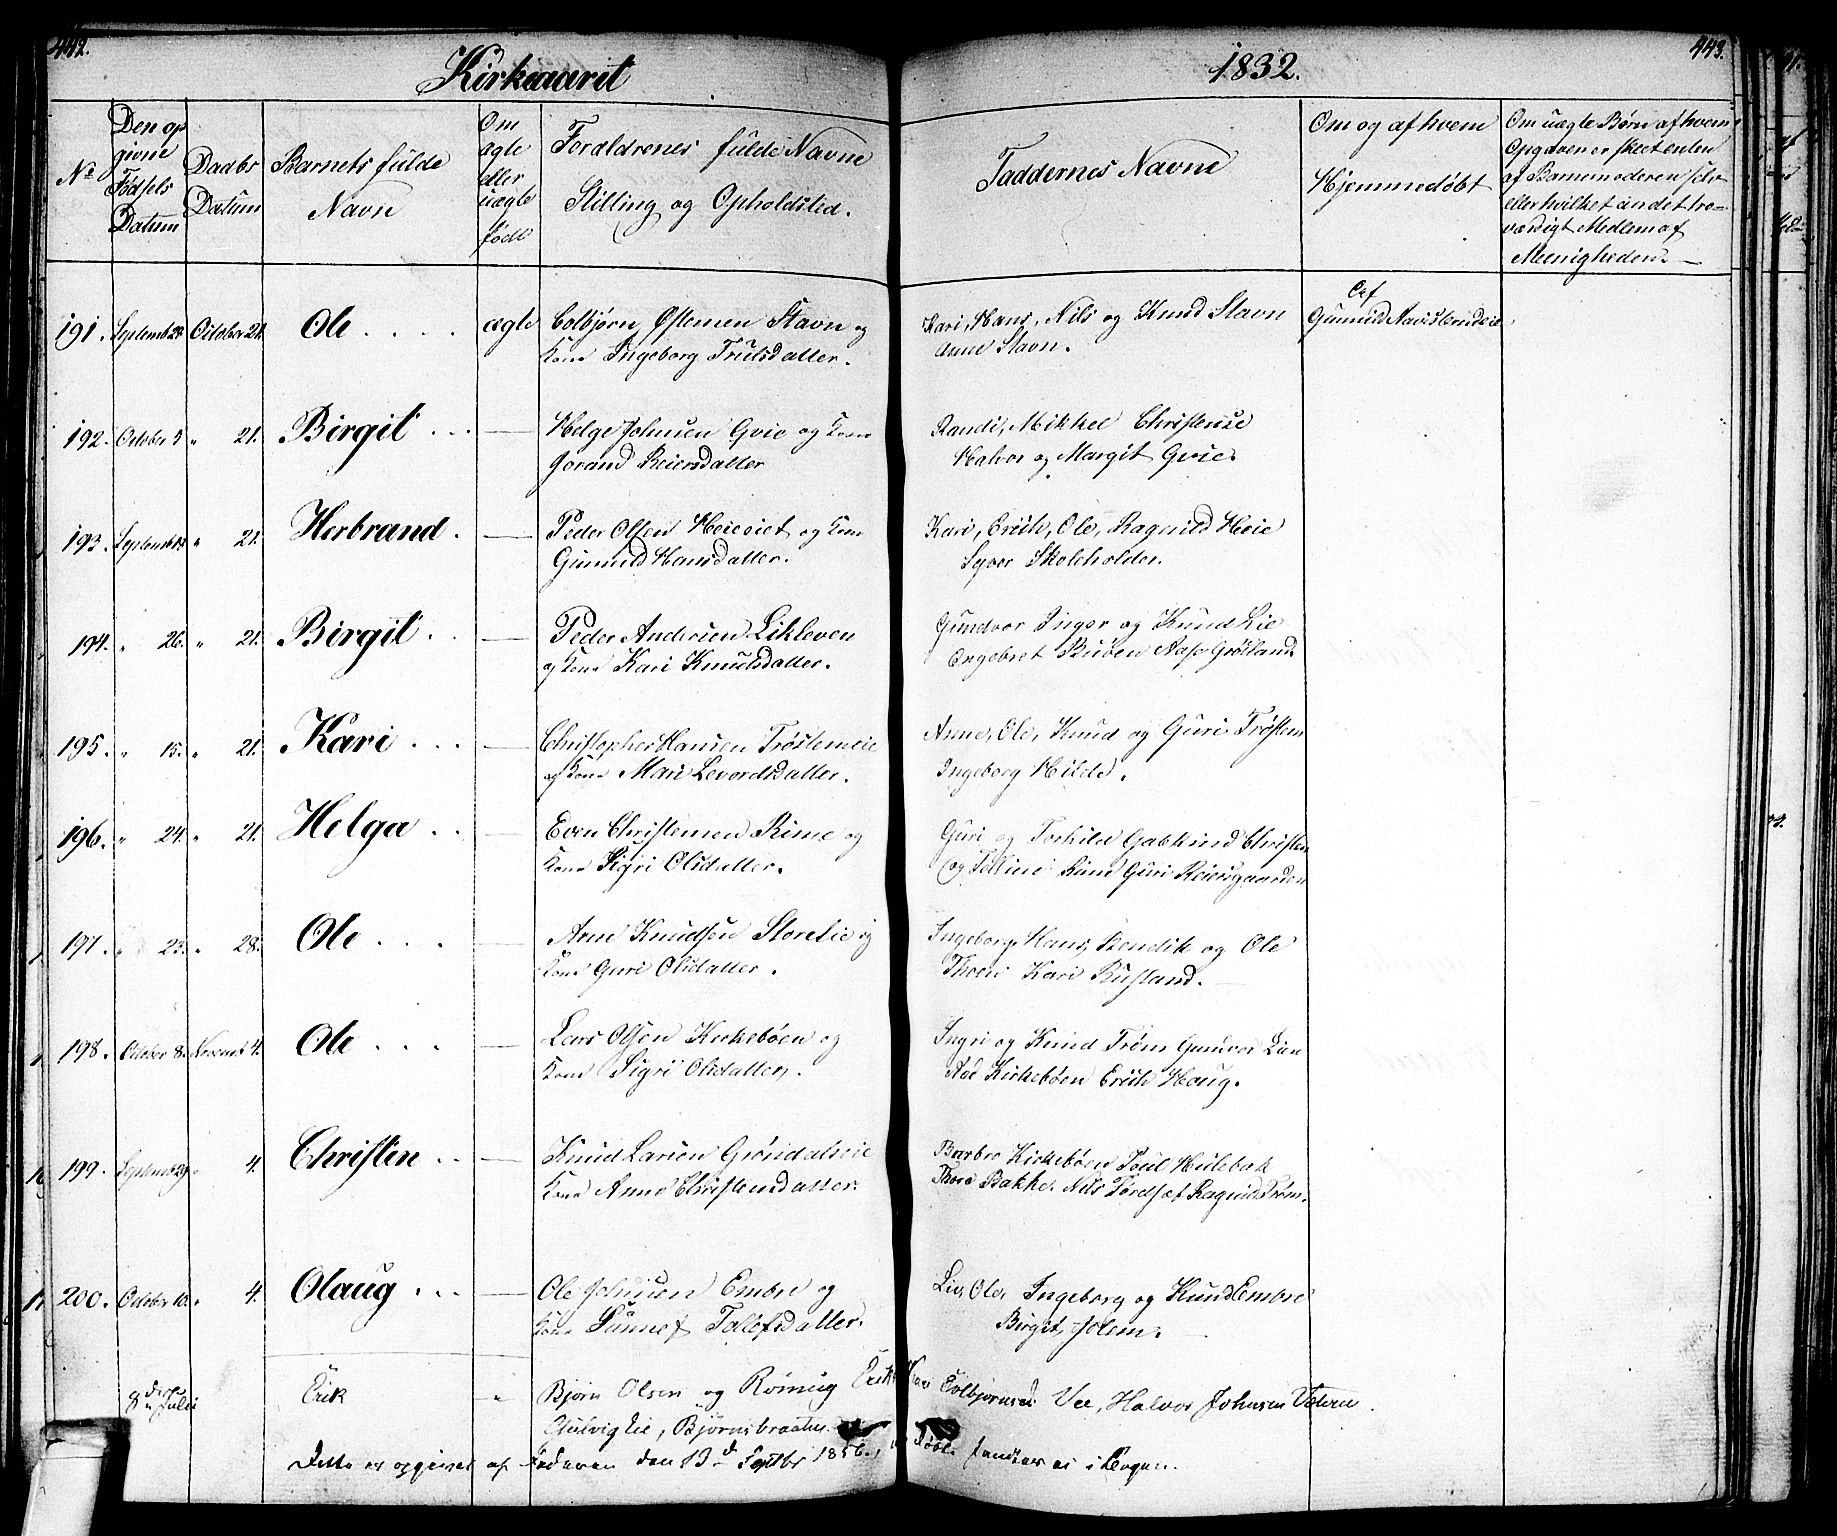 442.
Kirkeaaret
1832.
443.
No
Den op
givne
Fødsels
Datum
Daabs
Datum
Barnets fulde
Navn
Om
ægte
eller
uægte
født
Forældrenes fulde Navne
Stilling og Opholdsted.
Faddernes Navne
Om og af hvem
Hjemmedøbt
Om uægte Børn af hvem
Opgaven er skeet enten
af Barnemoderen selv
eller hvilket andet tro-
værdigt Medlem af
Meenigheden.
191. Septemb 24 October 21. Ole .... ægte Colbjørn Østensen Stavn og
Kone Ingeborg Trulsdatter.
Kari, Hans, Nils og Knud Stavn
Anne Stavn.
Af
Gunnild
192. October 3 " 21. Birgit ... — Helge Johnsen Gvie og Kone
Jorand Reiersdatter
Randi, Mikkel Christense
Halvor og Margit Gvie.
193. Septemb 18 " 21. Herbrand . — Peder Olsen Heieeiet og Kone
Gunnild Hansdatter.
Kari, Erich, Ole, Ragnild Heie
Syver Skoleholder.
194. " 26. " 21. Birgit .. — Peder Andersen Likleven
og Kone Kari Knudsdatter.
Gundvor Inger og Knud Lie
Engebret Ruden Aase Grøtland.
195. " 15. " 21. Kari ... — Christopher Hansen Trøstemeie
og Kone Mari Levordsdatter.
Anne, Ole, Knud og Guri Trøstem
Ingeborg Hilde.
196. " 24. " 21. Helga .. — Even Christensen Rime og
Kone Sigri Olsdatter.
Guri og Torhild Christen
og Rime Guri Reiersgaarden
197. " 23. " 28. Ole ... — Arne Knudsen Storelie og
Kone Guri Olsdatter.
Ingeborg, Hans, Bendik og Ole
Thoen Kari Rusland.
198. October 8. Novemb 4. Ole ... — Lars Olsen Kirkebøen og
Kone Sigri Olsdatter.
Ingri og Knud Trøm Gunvor Lien
Kirkebøen Erich Haug.
199. Septemb 29 " 4. Christen .. — Knud Larsen Grøndalseie
Kone Anne Christensdatter.
Barbro Kirkebøen Poul Hulebak
Thore Bakke. Nils Tordsæt Ragnild Trøm.
200. October 10. " 4. Olaug ... — Ole Johnsen Embre og
Kone Sunnef Tolefsdatter.
Liv, Ole, Ingeborg og Knud Embre
Birgit Jolem.
8de Juli Erik " Bjørn Olsen og Rønnug Erik
Colbjørnsen Vee, Halvor Johnsen
Gulvig Eie, Bjørnsbraaten.
Dette er opgivet af Faderen den 13de Septbr 1856.
i Bogen.